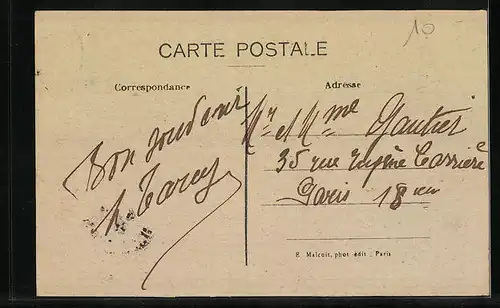 10
CARTE POSTALE
Correspondance
Adresse
Bon souvenir
Mr et Mme Gautier
35 rue Eugène Carrière
Paris 18em
E. Malcuit, phot-édit., Paris